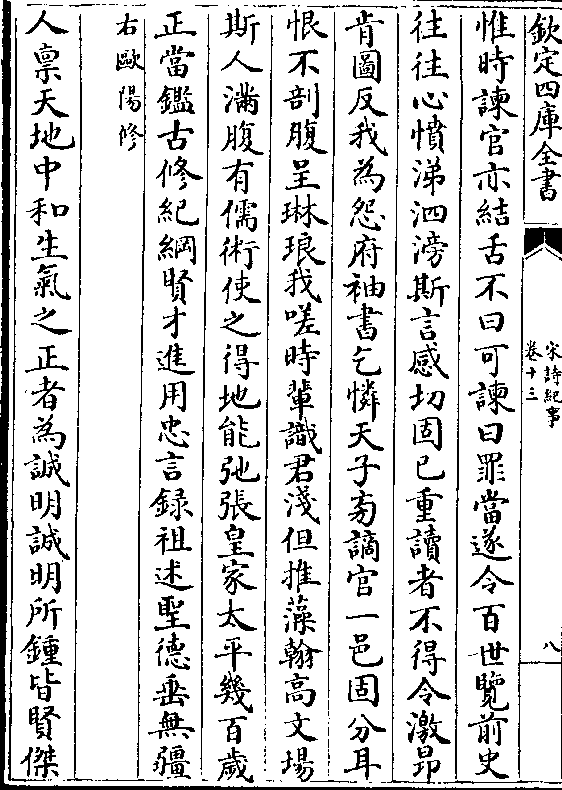 欽定四庫全書
宋詩紀事
卷十三
八
惟時諫官亦結舌不曰可諫曰罪當遂令百世覽前史
往往心憤涕泗滂斯言感切固已重讀者不得令激昂
肯圖反我為怨府袖書乞憐天子旁謫官一邑固分耳
恨不剖腹呈琳琅我嗟時輩識君淺但推藻翰高文場
斯人滿腹有儒術使之得地能弛張皇家太平幾百歲
正當鑑古修紀綱賢才進用忠言錄祖述聖德垂無疆
右歐陽修
人稟天地中和生氣之正者為誠明誠明所鍾皆賢傑